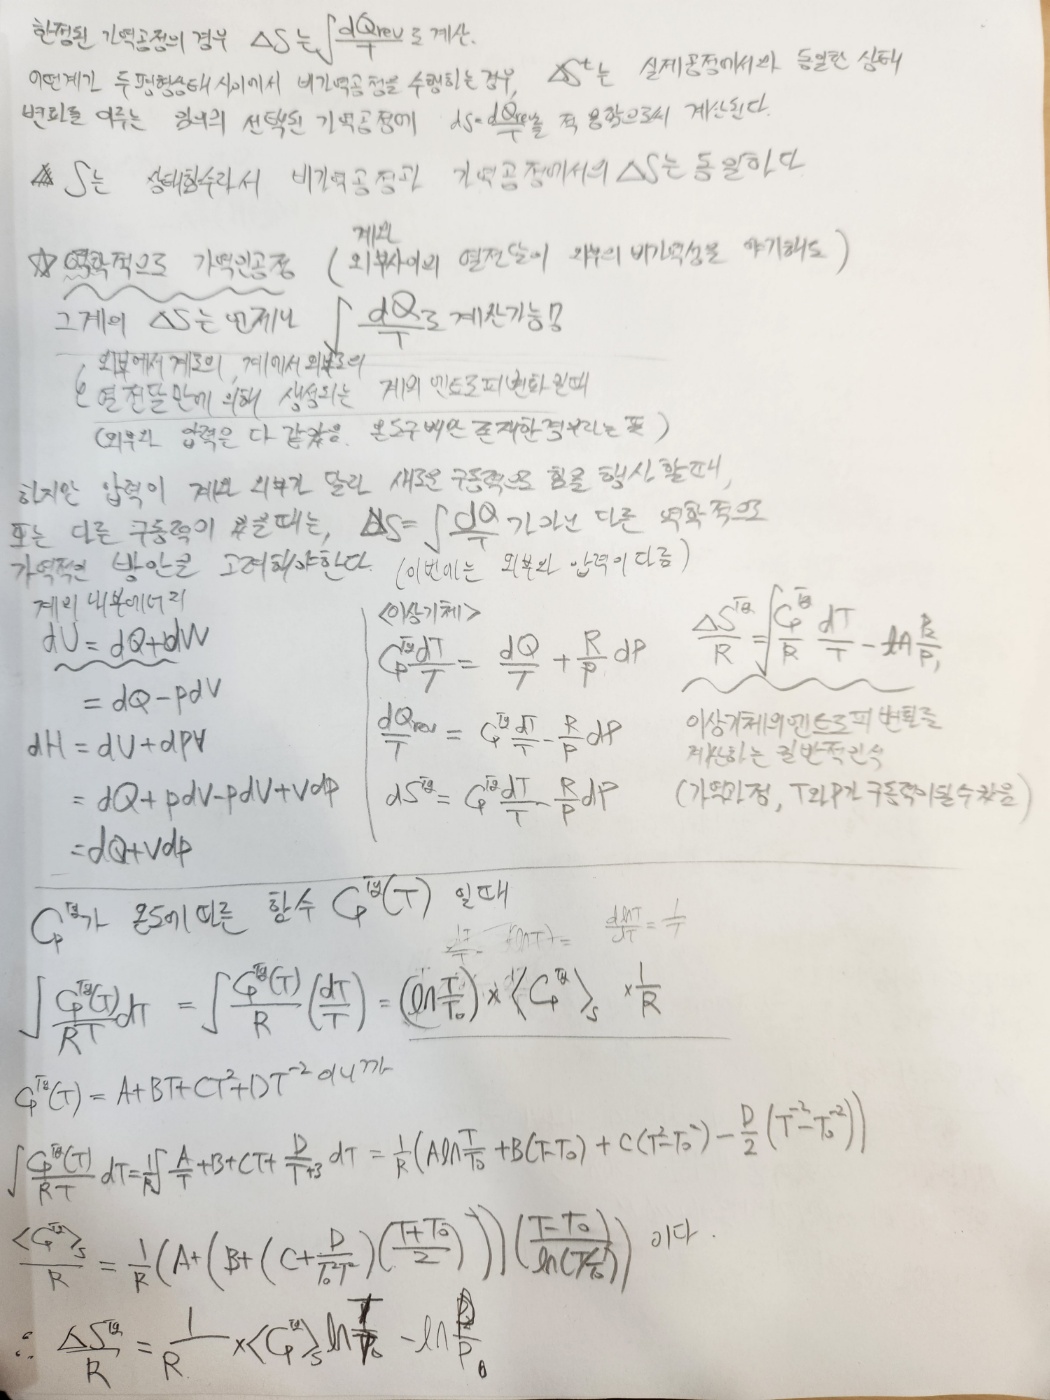 한정된 가역공정의 경우 ΔS는 ∫dQrev/T로 계산.
어떤계가 두평형상태 사이에서 비가역공정을 수행하는경우, ΔSᵗ는 실제공정에서와 동일한 상태
변화를 이루는 임의의 선택된 가역공정에 ds=dQrev/T를 적용함으로써 계산된다.
S는 상태함수라서 비가역공정과 가역공정에서의 ΔS는 동일하다
☆ 역학적으로 가역인공정 (계와 외부사이의 열전달이 외부의 비가역성을 야기해도)
그계의 ΔS는 언제나 ∫dQ/T로 계산가능
외부에서 계로의, 계에서 외부로의
열전달만에 의해 생성되는 계의 엔트로피변화일때
(외부와 압력은 다 같았음. 온도구배만 존재한경우라는 뜻)
하지만 압력이 계와 외부가 달라 새로운 구동력으로 힘을 행사할때,
또는 다른 구동력이 있을때는, ΔS=∫dQ/T가아닌 다른 역학적으로
가역적인 방안을 고려해야한다. (이번에는 외부와 압력이다름)
계의 내부에너지
dU = dQ+dW
= dQ-PdV
dH = dU+dPV
= dQ+PdV-PdV+VdP
=dQ+VdP
<이상기체>
Cp^ig dT/T = dQ/T + R/P dP
dQrev/T = Cp^ig dT/T - R/P dP
dS^ig = Cp^ig dT/T - R/P dP
ΔS^ig/R = ∫Cp^ig/R dT/T - ln P₂/P₁
이상기체의엔트로피 변화를
계산하는 일반적인식
(가역과정, T와P가 구동력이될수있음)
Cp^ig가 온도에따른 함수 Cp^ig(T) 일때
dlnT/dT = 1/T
∫Cp^ig(T)/RT dT = ∫Cp^ig(T)/R (dT/T) = (ln T/T₀) × ⟨Cp^ig⟩s × 1/R
Cp^ig(T) = A+BT+CT²+DT⁻² 이니까
∫Cp^ig(T)/RT dT = 1/R ∫A/T +B+CT+ D/T⁺³ dT = 1/R (A ln T/T₀ +B(T-T₀) + C(T²-T₀²) - D/2 (T⁻²-T₀⁻²))
⟨Cp^ig⟩s/R = 1/R (A+(B+(C+ D/T₀²T²)((T+T₀)/2)))((T-T₀)/ln(T/T₀)) 이다.
∴ ΔS^ig/R = 1/R ×⟨Cp^ig⟩s ln T/T₀ - ln P/P₀